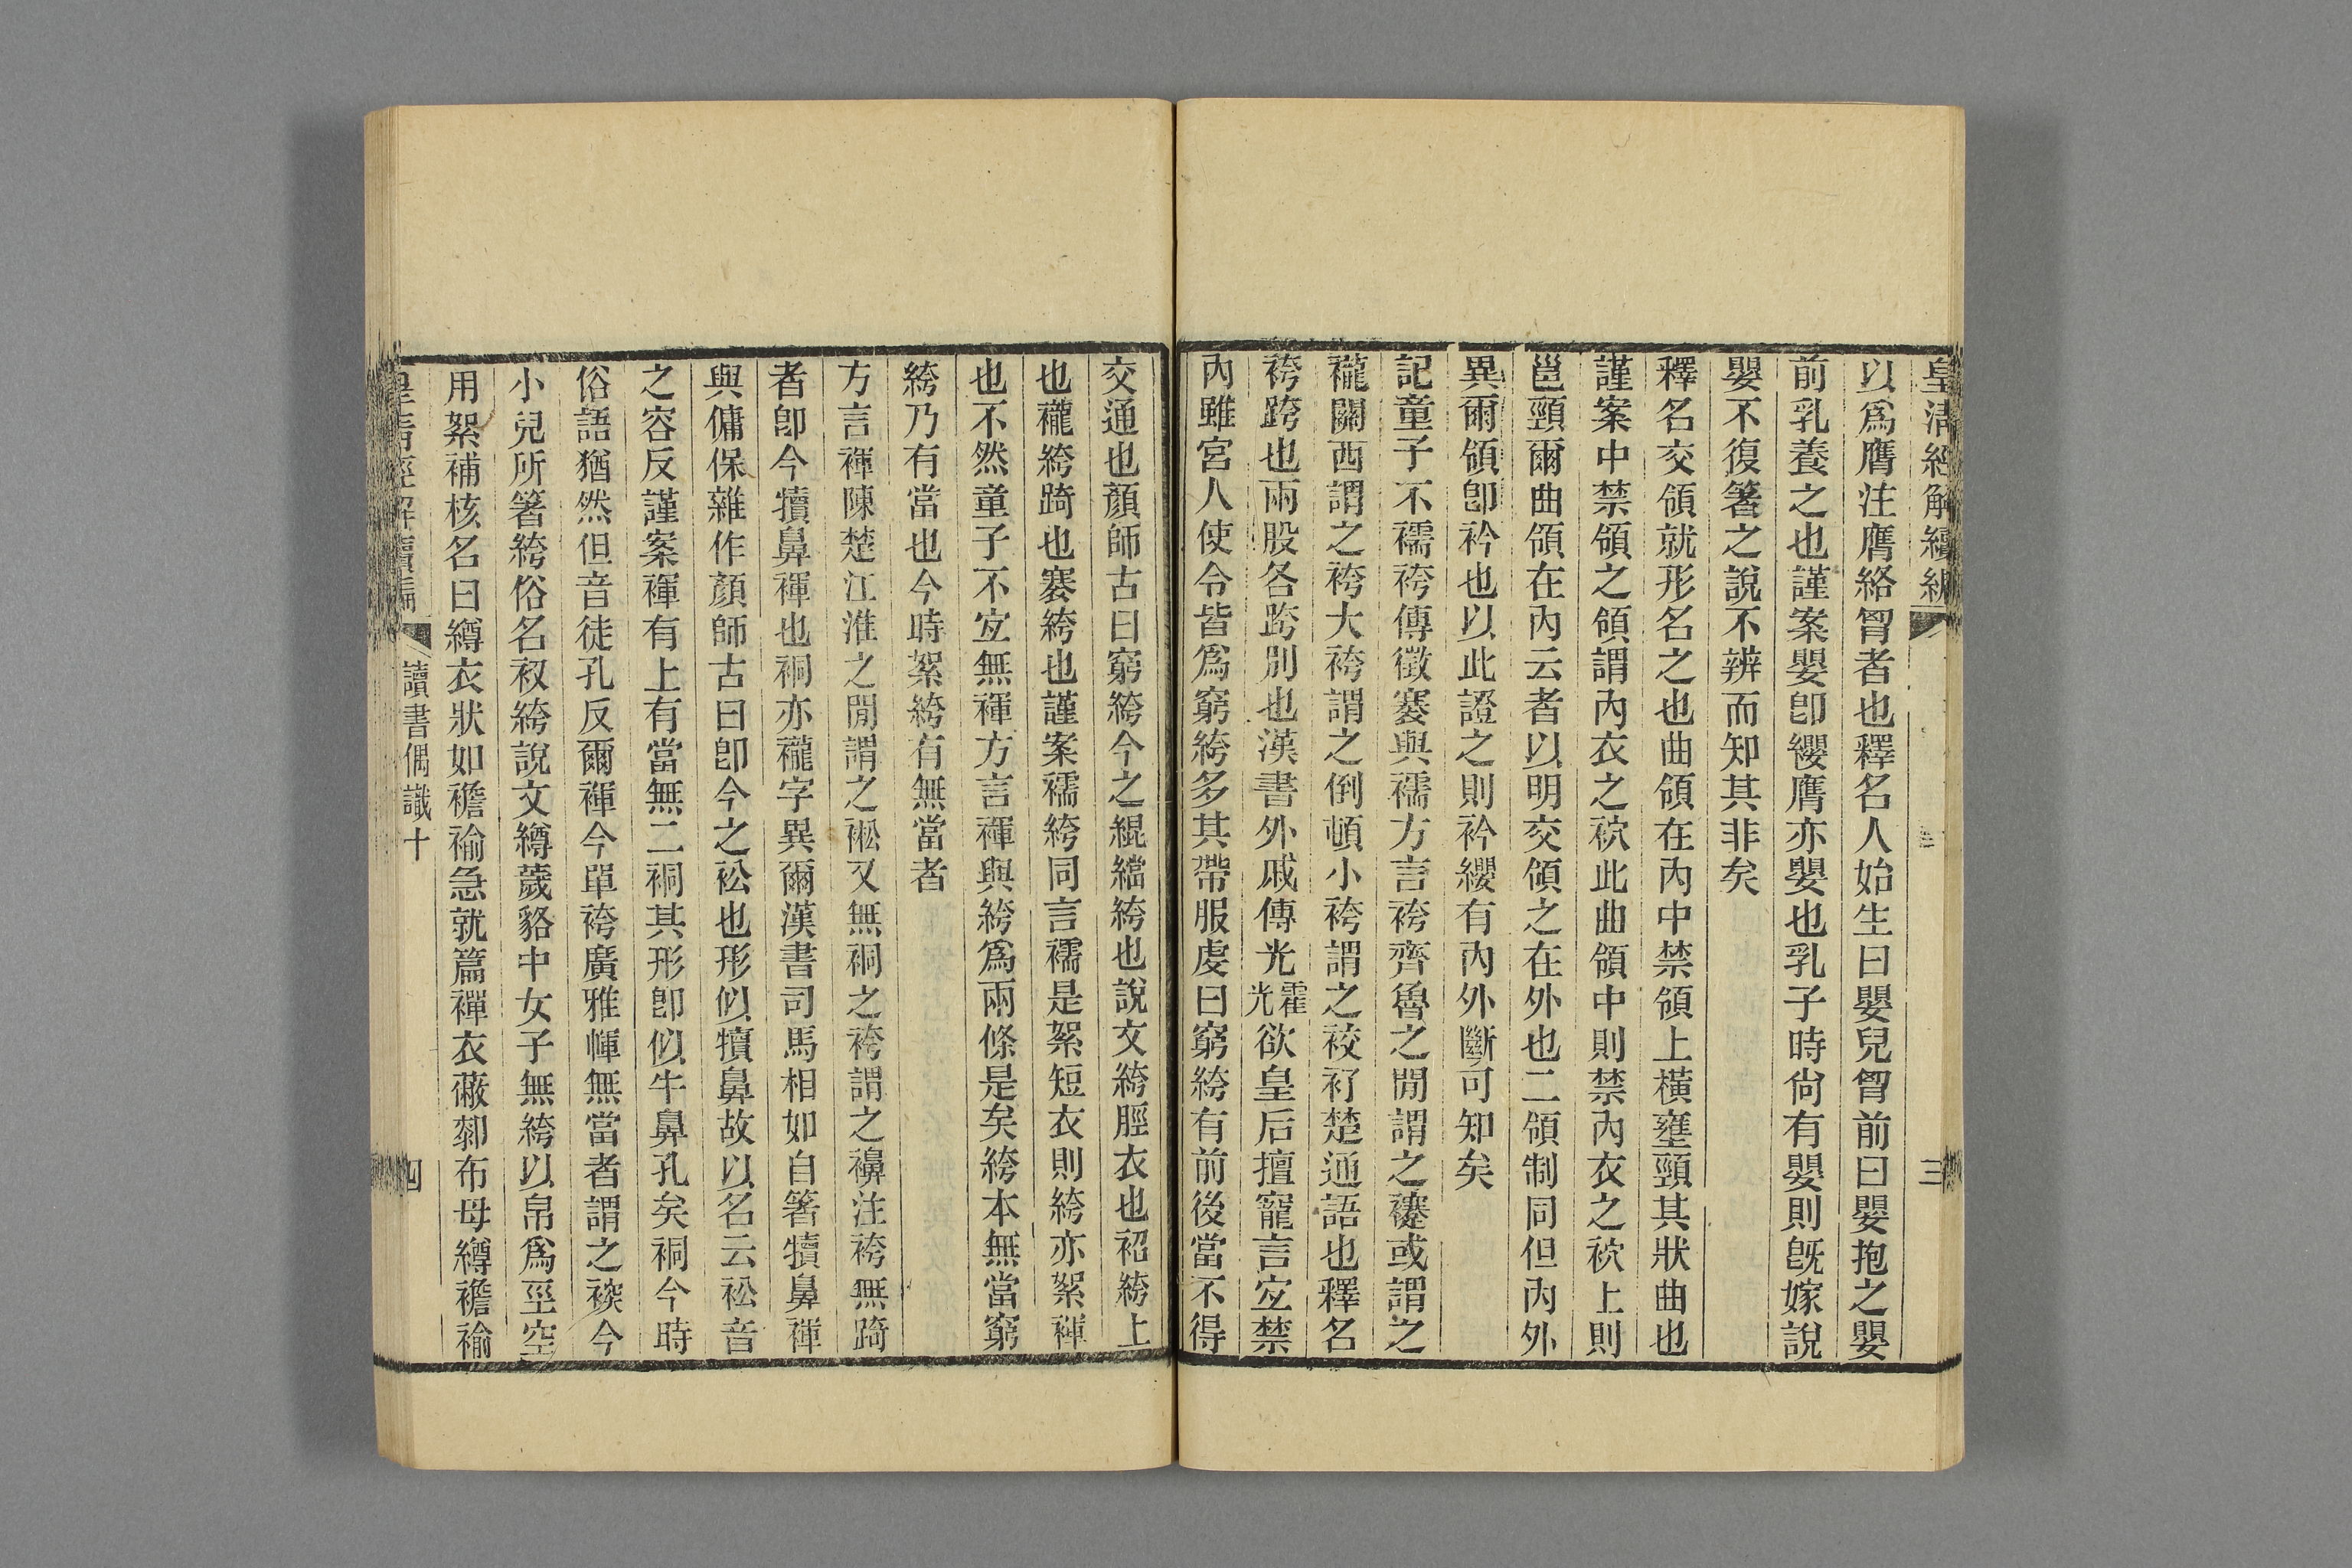 皇淸經解續編
三
以爲膺注膺絡胷者也釋名人始生曰嬰兒胷前曰嬰抱之嬰
前乳養之也謹案嬰卽纓膺亦嬰也乳子時尙有嬰則旣嫁說
嬰不復箸之說不辨而知其非矣
釋名交領就形名之也曲領在內中禁領上橫壅頸其狀曲也
謹案中禁領之領謂內衣之䘳此曲領中則禁內衣之䘳上則
邕頸爾曲領在內云者以明交領之在外也二領制同但內外
異爾領卽衿也以此證之則衿纓有內外斷可知矣
記童子不襦袴傳徵褰與襦方言袴齊魯之閒謂之䙭或謂之
襱關西謂之袴大袴謂之倒頓小袴謂之䘨衳楚通語也釋名
袴跨也兩股各跨別也漢書外戚傳光霍光欲皇后擅寵言宐禁
內雖宮人使令皆爲窮絝多其帶服虔曰窮絝有前後當不得
交通也顏師古曰窮絝今之緄襠絝也說文絝脛衣也袑絝上
也襱絝踦也褰絝也謹案襦絝同言襦是絮短衣則絝亦絮褌
也不然童子不宐無褌方言褌與絝爲兩條是矣絝本無當窮
絝乃有當也今時絮絝有無當者
方言褌陳楚江淮之閒謂之㡓又無祠之袴謂之襣注袴無踦
者卽今犢鼻褌也祠亦襱字異爾漢書司馬相如自箸犢鼻褌
與傭保雜作顏師古曰卽今之衳也形似犢鼻故以名云衳音
之容反謹案褌有上有當無二祠其形卽似牛鼻孔矣祠今時
俗語猶然但音徒孔反爾褌今單袴廣雅㡓無當者謂之䙝今
小兒所箸絝俗名衩絝說文繜薉貉中女子無絝以帛爲脛空
用絮補核名曰繜衣狀如襜褕急就篇襌衣蔽䣛布母繜襜褕
皇淸經解續編
讀書偶識十
四